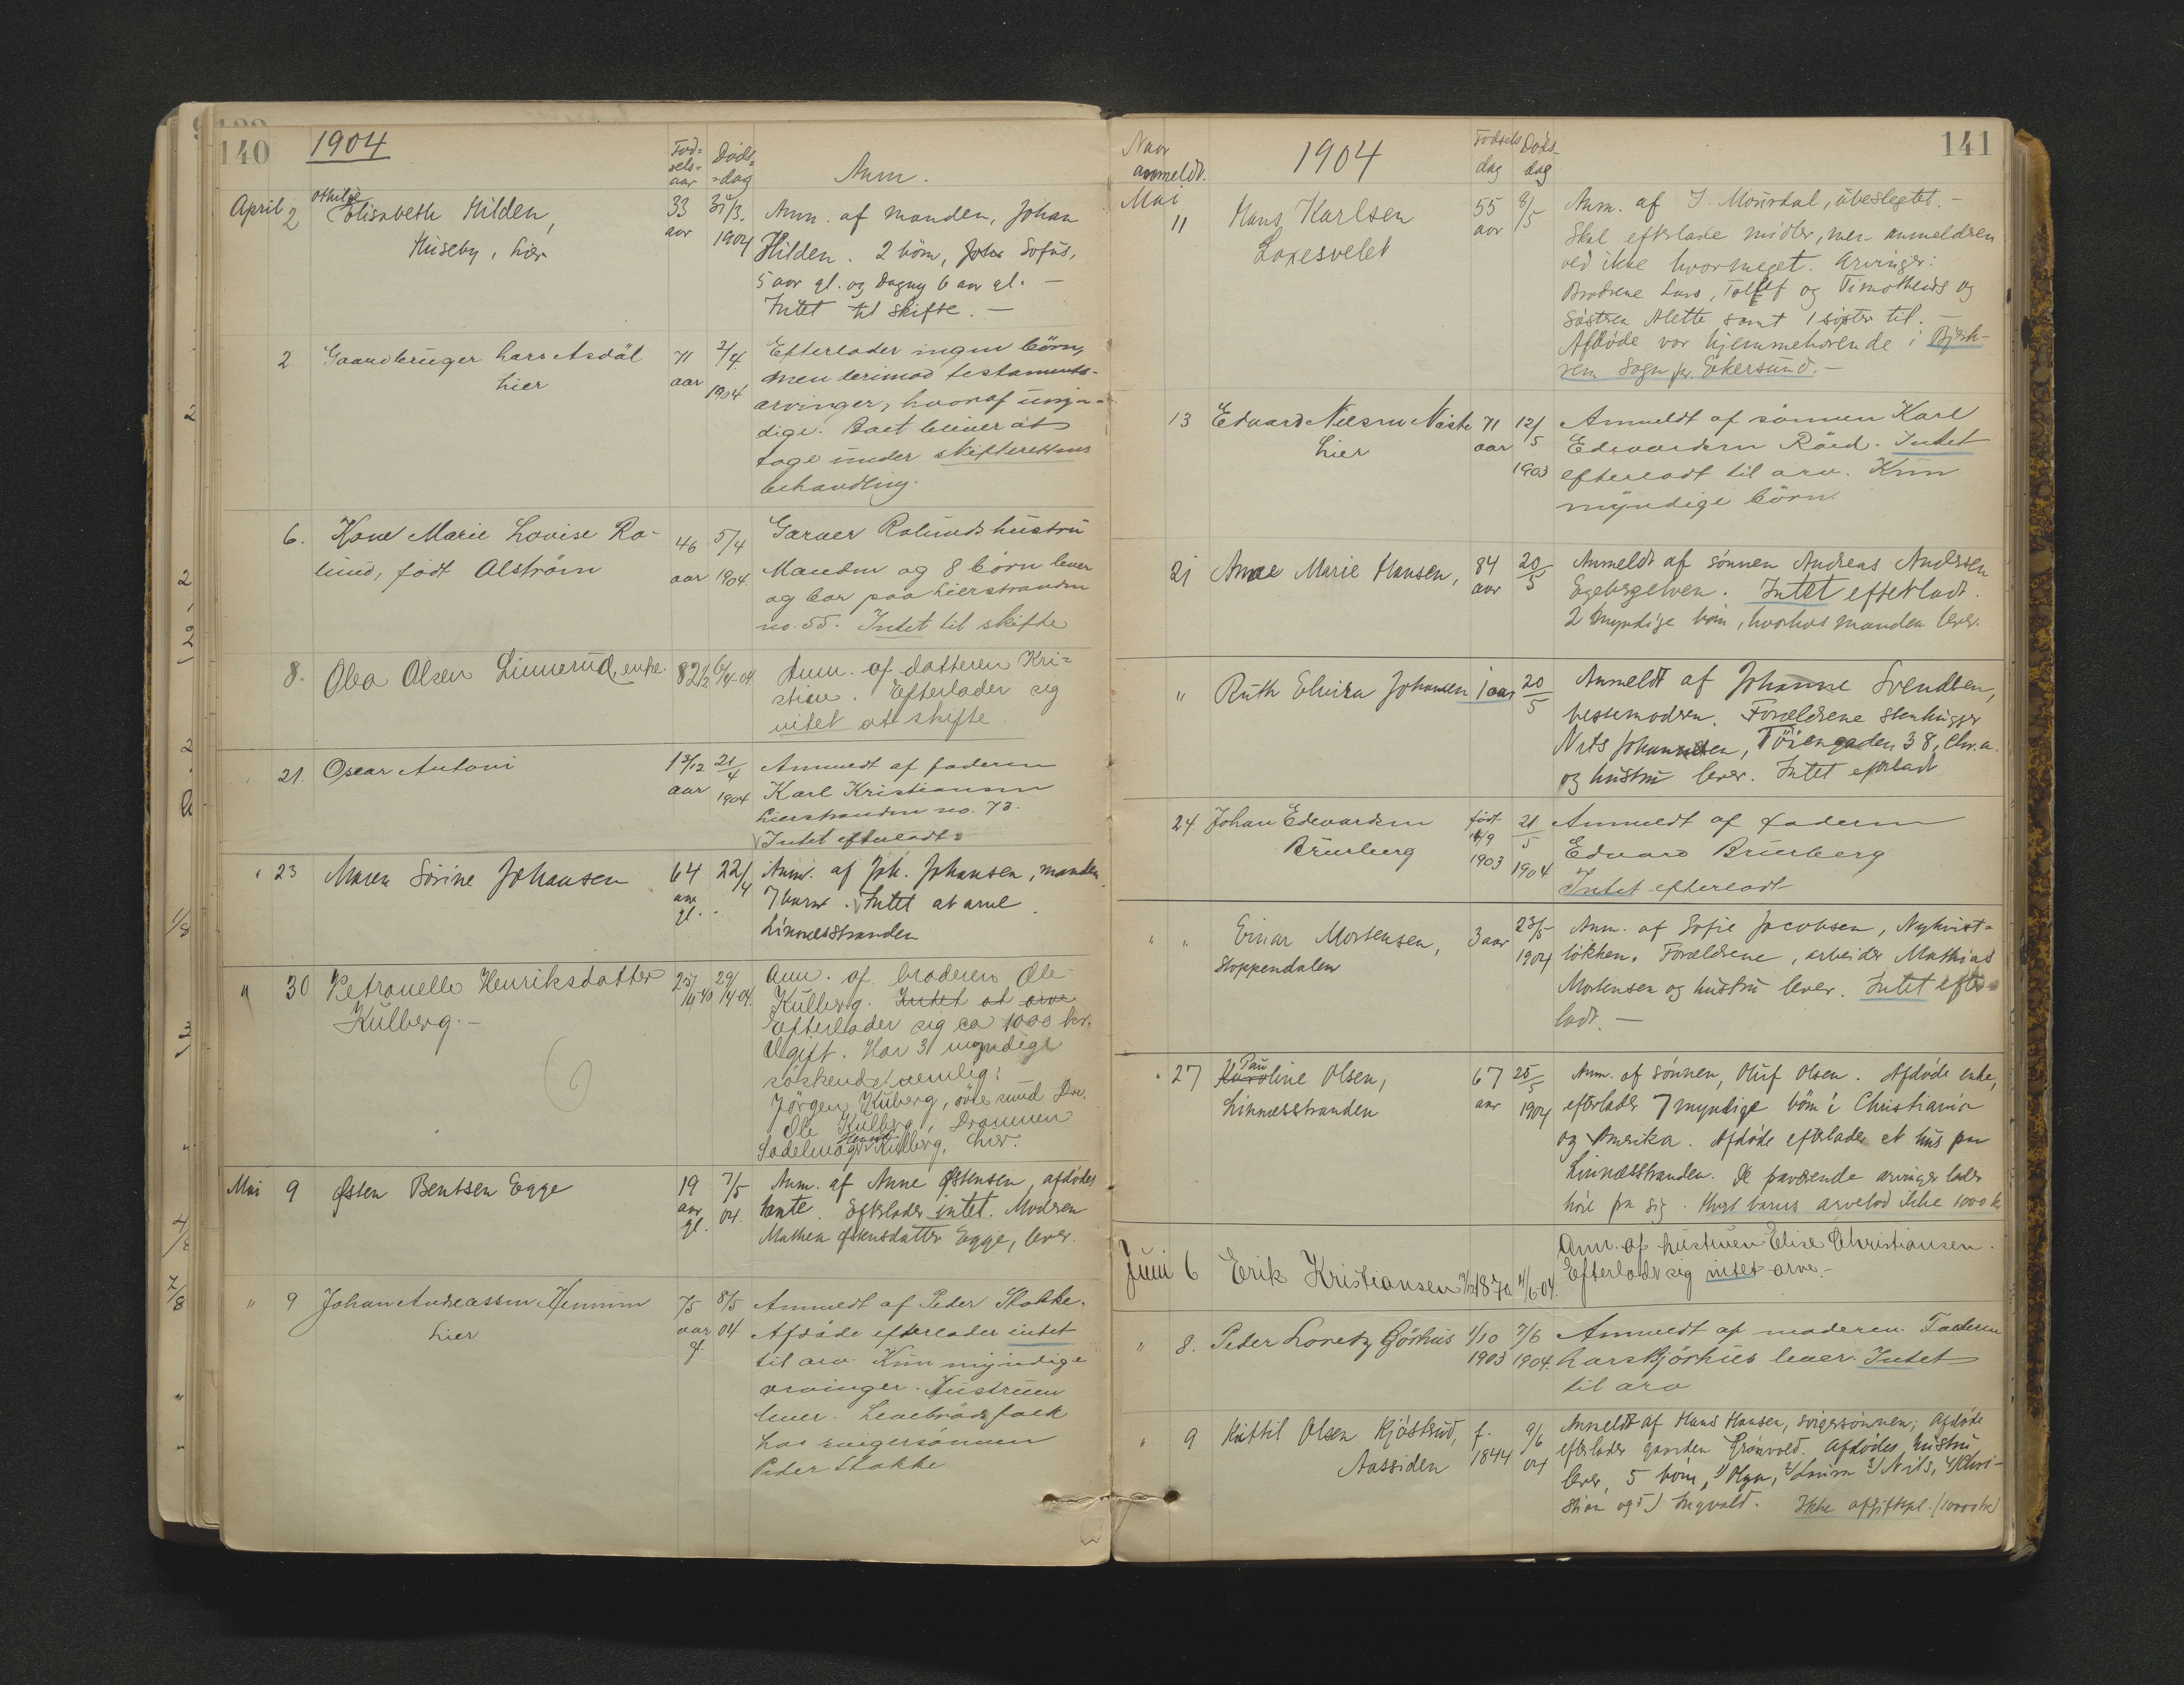 140
1904
Fød=
sels=
aar
Døds=
=dag
Anm.
April 2
Othilie
Elisabeth Hilden,
Huseby, Lier
33
aar
31/3.
1904
Anm. af manden, Johan
Hilden. 2 børn, Sofus,
5 aar gl. og Dagny 6 aar gl. —
Intet til skifte. —
2. Gaardbruger Lars Asdøl
Lier
71
aar
2/4.
1904
Efterlader ingen børn,
men derimod testaments-
arvinger, hvoraf umyn-
dige. Boet bliver at
tage under skifterettens
behandling.
6. Kone Marie Lovise Ro-
lund, født Alstrøm
46
aar
5/4
1904.
Garver Rolunds hustru
Manden og 8 børn lever
og bor paa Lierstranden
no. 55. Intet til skifte
8. Olea Olsen Linnerud, enke.
82 1/2
6/4-04
Anm. af datteren Kri=
stine. Efterlader sig
intet at skifte
21. Oscar Antoni
1 3/12
aar
21/4
1904
Anmeldt af faderen
Karl Kristiansen
Lierstranden no. 73.
Intet efterladt
23 Maren Sørine Johansen
64
aar
gl.
22/4
Anm. af Joh. Johansen, manden.
7 børn. Intet at arve.
Linnesstranden
" 30 Petronelle Henriksdatter
Kulberg. —
25/11 40
29/4-04.
Anm. af broderen Ole
Kulberg. Intet at arve
Efterlader sig ca 1000 kr.
Ugift. Har 3 myndige
søskende nemlig:
Jørgen Kulberg, øvre sund Dr.
Ole Kulberg, Drammen
Sadelmager Henrik Kulberg, Lier.
Mai 9 Østen Bentsen Egge
19
aar
gl.
7/5
04.
Anm. af Anne Østensen, afdødes
tante. Efterlader intet. Modren
Mathea Østensdatter Egge, lever.
" 9 Johan Andreassen Hennum
Lier
75
aar
gl.
8/5
04
Anmeldt af Peder Stokke.
Afdøde efterlader intet
til arv. Kun myndige
arvinger. Hustruen
lever. Levebrødsfolk
hos svigersønnen
Peder Stokke
141
Naar
anmeldt.
1904
Fødsels
dag
Døds-
dag
Mai
11 Hans Karlsen
55
aar
8/5
Anm. af J. Moursdal, ubeslegtet. —
Skal efterlade midler, men anmelderen
ved ikke hvormeget. Arvinger:
Brødrene Lars, Tollef og Timotheus og
søstren Alette samt 1 søster til. —
Afdøde var hjemmehørende i Bjerk-
rem sogn pr. Ekersund. —
13 Edvard Nilsen Nøste
Lier
71
aar
12/5
1903
Anmeldt af sønnen Karl
Edvardsen Røed. Intet
efterladt til arv. Kun
myndige børn.
21 Anne Marie Hansen,
84
aar
20/5
Anmeldt af sønnen Andreas Andersen
Egebergelven. Intet efterladt.
2 myndige børn, hvorhos manden lever.
" Ruth Elvira Johansen
1 aar
20/5
Anmeldt af Johanne Svendsen,
bestemodren. Forældrene stenhugger
Nils Johansen, Tøiengaden 38, Chr.a.
og hustru lever. Intet efterladt
24 Johan Edvardsen
Bruerberg
født
14/9
1903
21/5
1904
Anmeldt af faderen
Edvard Bruerberg
Intet efterladt
" " Einar Mortensen,
Stoppendalen
3 aar
23/5
1904
Anm. af Sofie Jacobsen, Nykvist=
løkken. Forældrene, arbeider Mathias
Mortensen og hustru lever. Intet efter-
ladt. —
27 Pauline Olsen,
Linnesstranden
67
aar
25/5
1904
Anm. af sønnen, Oluf Olsen. Afdøde enke,
efterlader 7 myndige børn i Christiania
og Amerika. Afdøde efterlader et hus paa
Linnesstranden. De fraværende arvinger lader
høre fra sig. Hvert barns arvelod ikke 1000 kr
Juni 6 Erik Kristiansen
4/6-04.
Anm. af hustruen Elise Christiansen.
Efterlader sig intet arve. —
" 8. Peder Loretz Gjøshus
1/10
1903
7/6
1904.
Anmeldt af moderen. Faderen
Lars Gjøshus lever. Intet
til arv
" 9 Kittil Olsen Kjøstrud,
Aassiden
f.
1844
9/6
04
Anmeldt af Hans Hansen, svigersønnen; Afdøde
efterlader gaarden Grønvold. Afdødes hustru
lever, 5 børn, 1) Olga, 2) Laura 3) Nils, 4) Chri-
stian og 5) Ingvald. Ikke afgiftspl. (10000 kr)